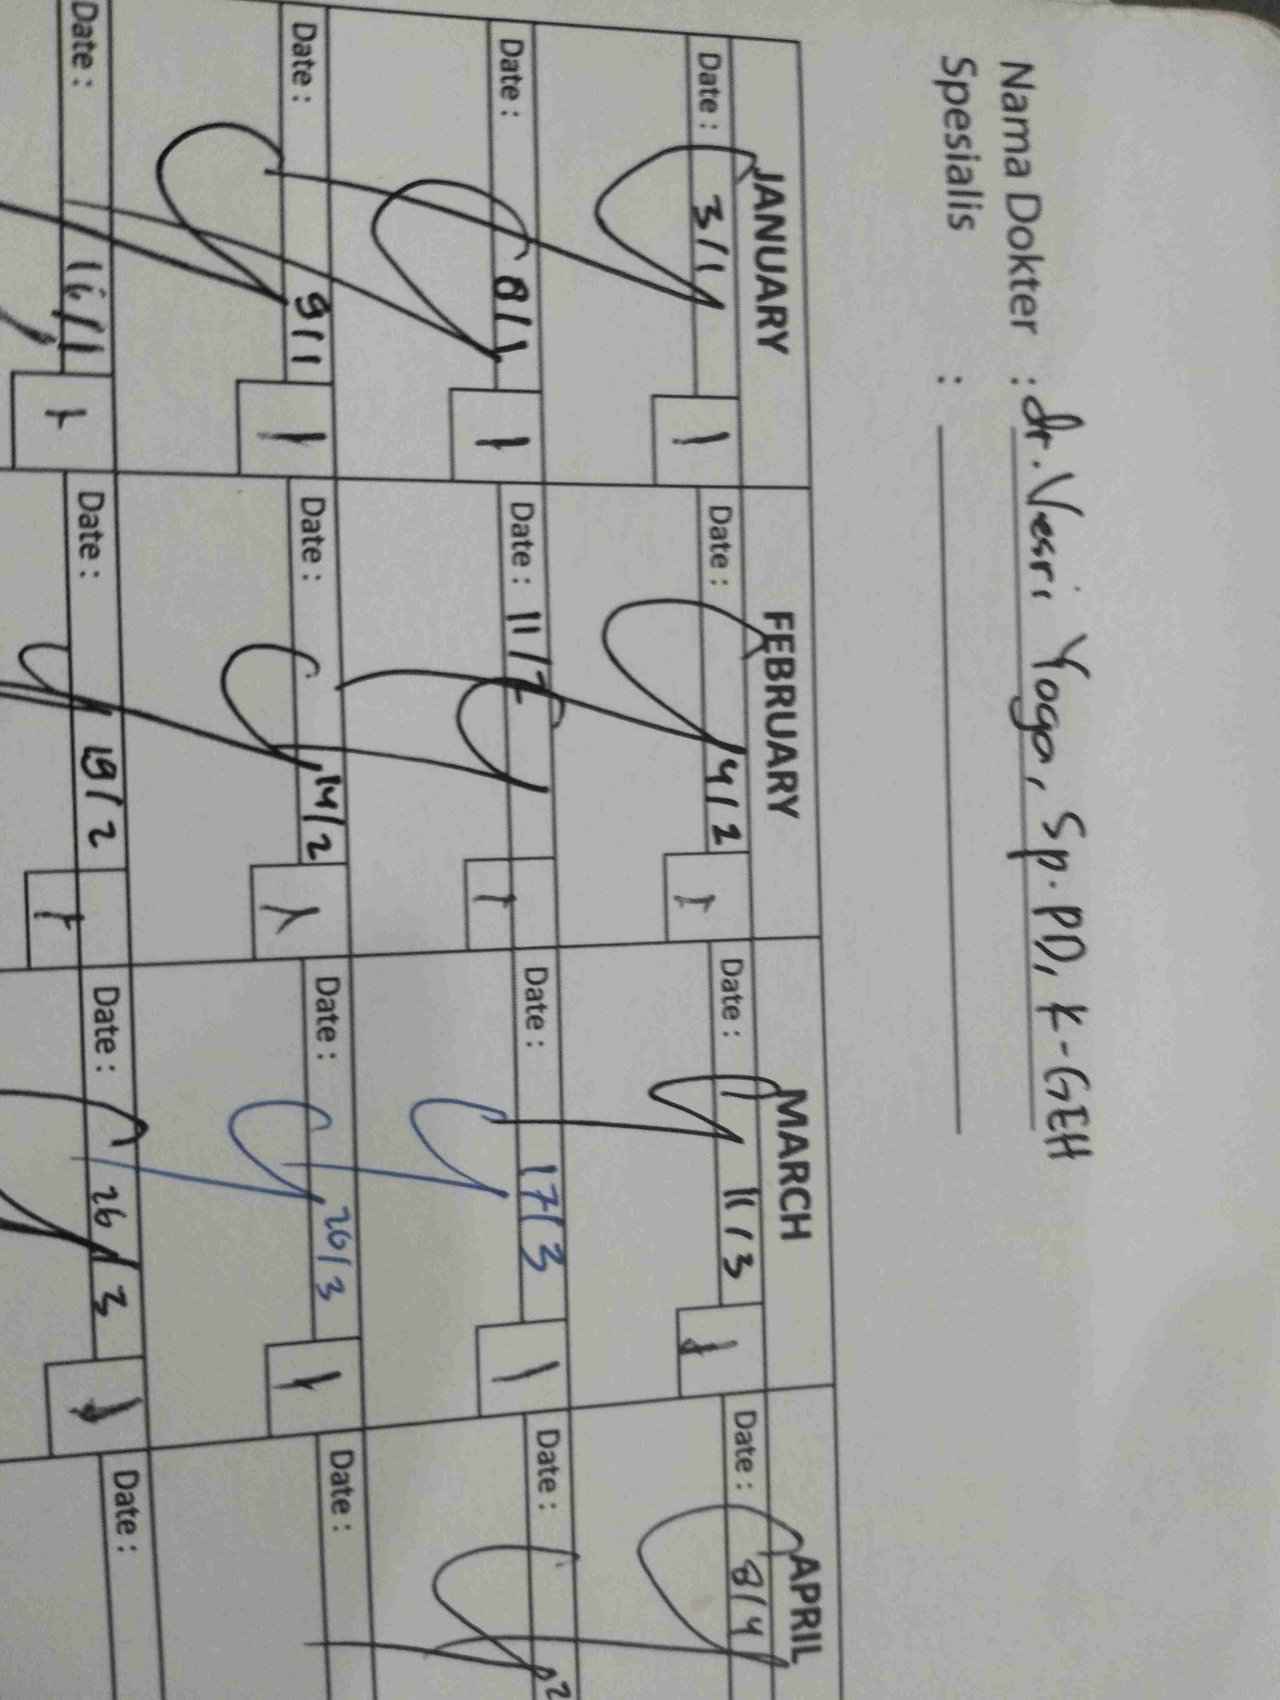 Nama Dokter : dr. Vesri Yoga, Sp.PD, K-GEH
Spesialis :
JANUARY FEBRUARY MARCH APRIL
Date : 3/1 Date : 4/2 Date : 11/3 Date : 8/4
1 1 1
Date : 8/1 Date : 11/2 Date : 17/3 Date : 2
1 1 1
Date : 9/1 Date : 14/2 Date : 20/3 Date :
1 1 1
Date : 16/1 Date : 19/2 Date : 26/3 Date :
1 1 1